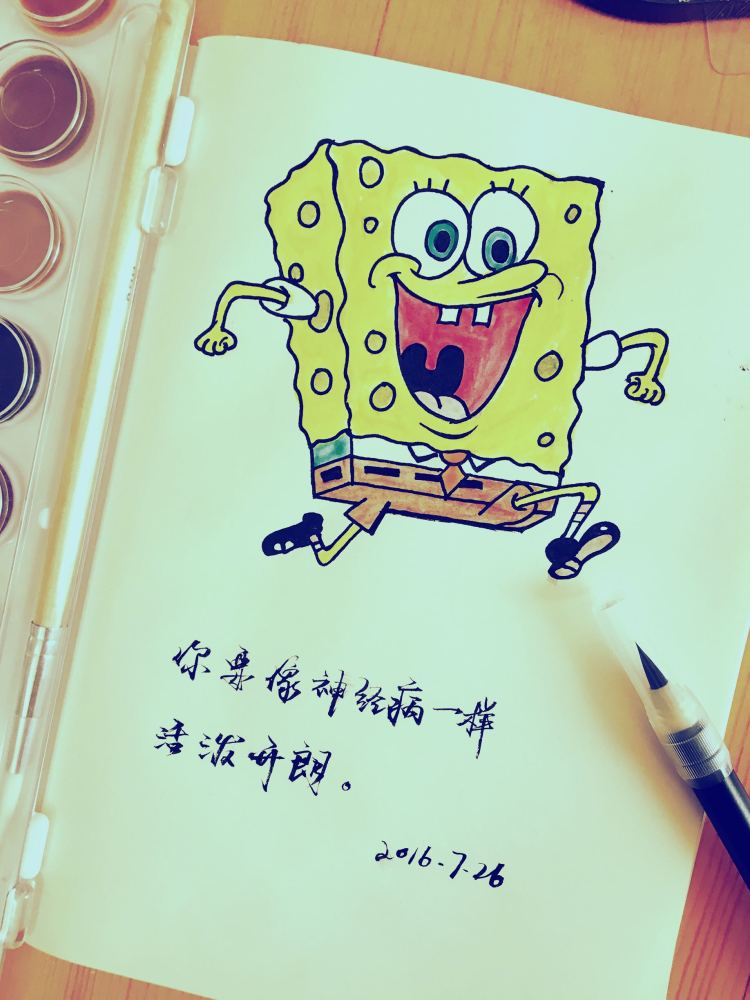 你要像神经病一样
活泼开朗。
2016.7.26